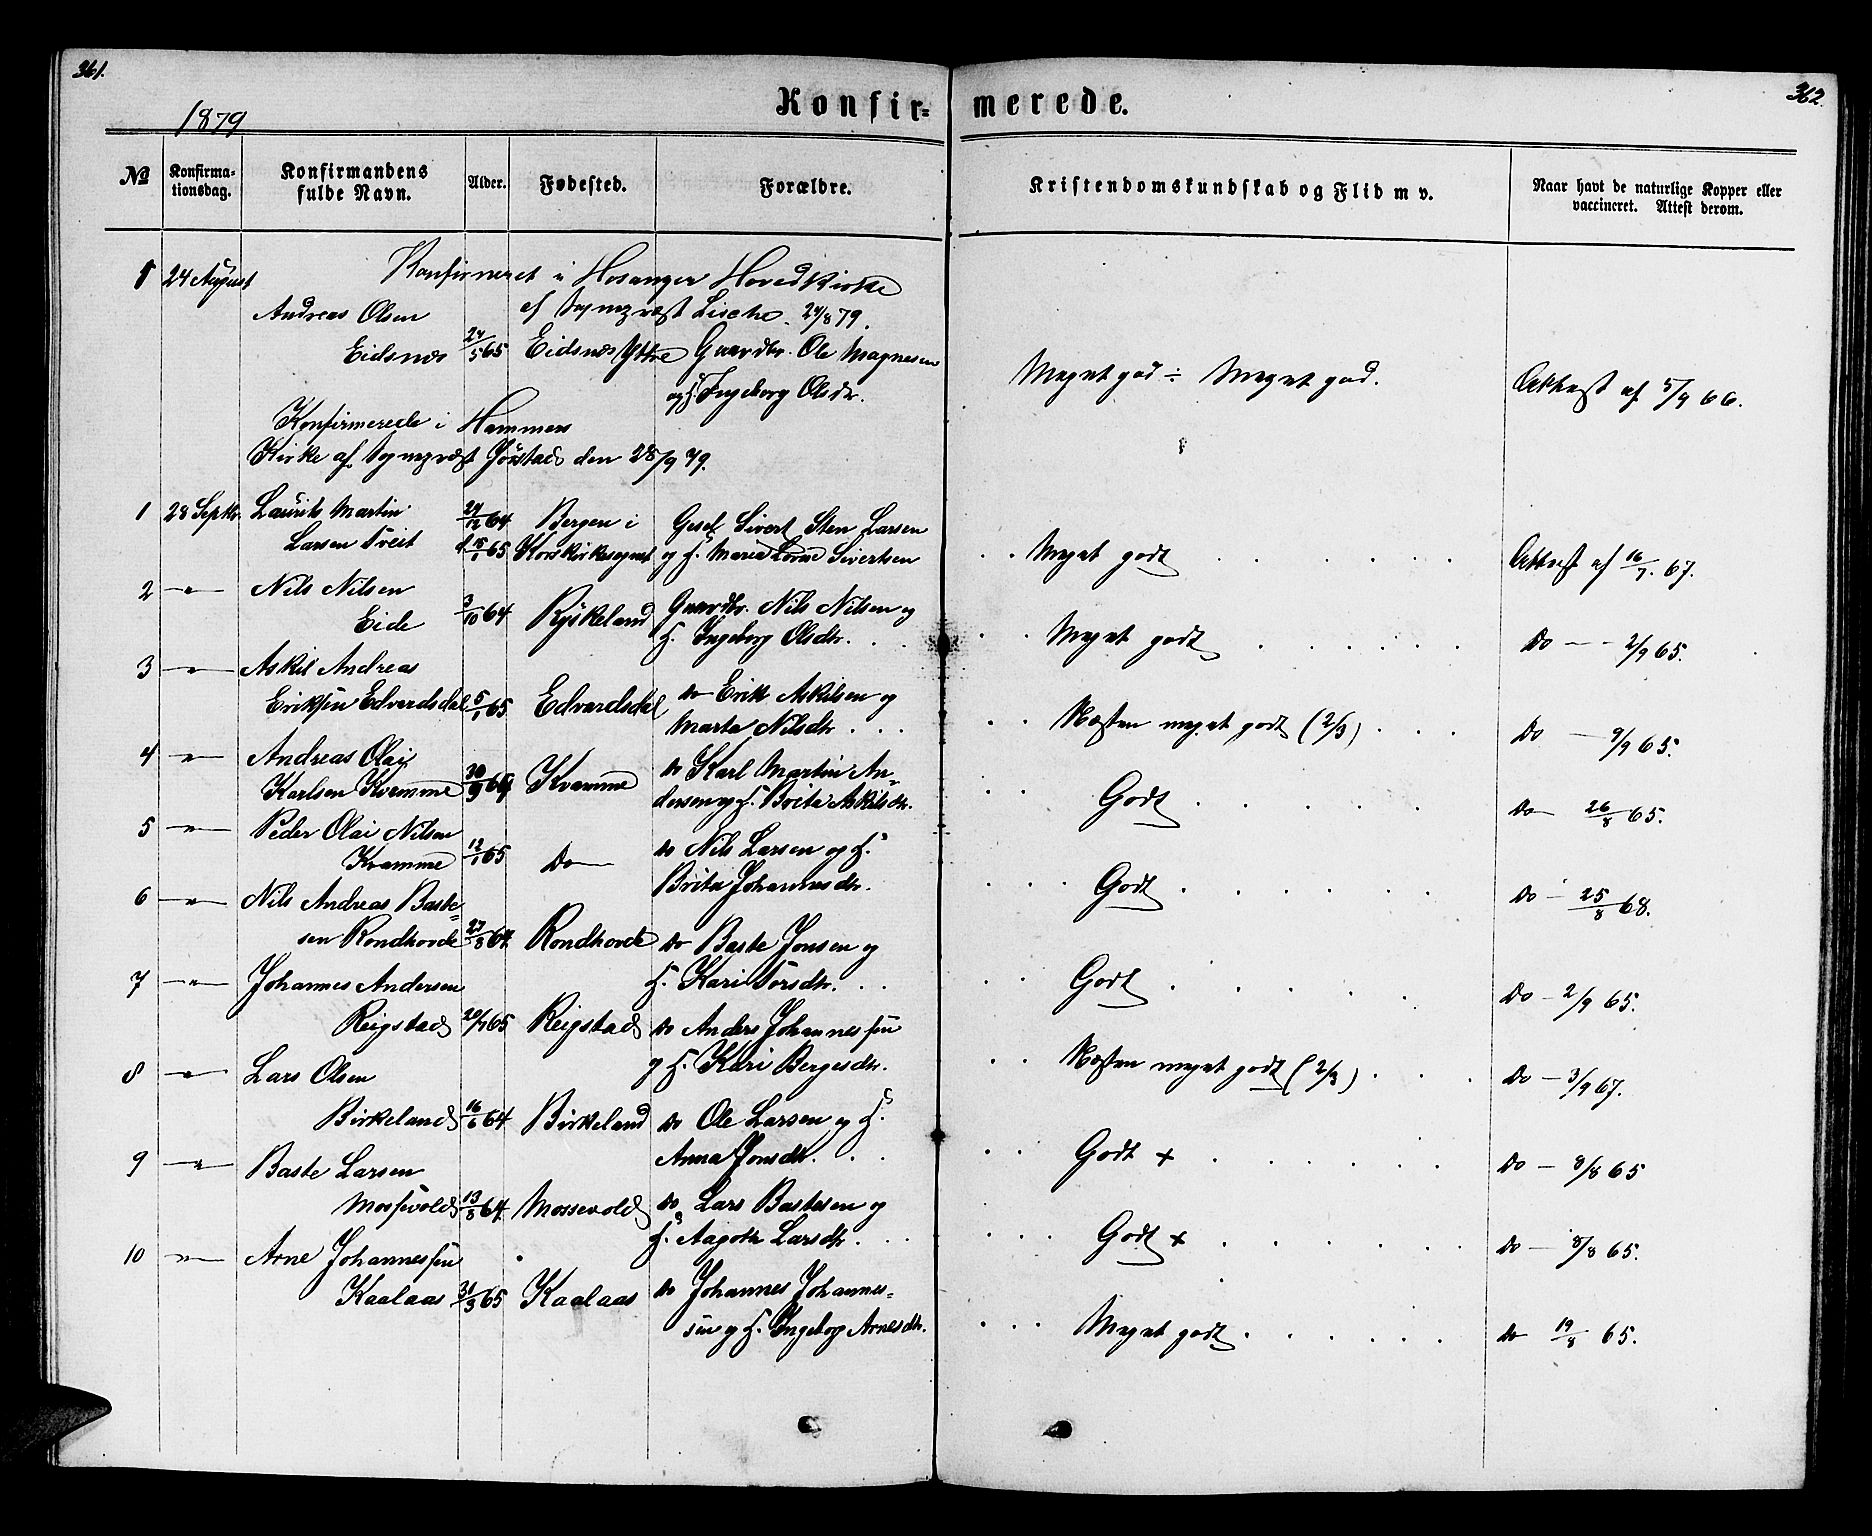 361.
362.
1879
Konfir-
merede.
No
Konfirma-
tionsdag.
Konfirmandens
fulde Navn.
Alder.
Fødested.
Forældre.
Kristendomskundskab og Flid m v.
Naar havt de naturlige Kopper eller
vaccineret. Attest derom.
1 24 August Konfirmeret i Hosanger Hovedkirke
Andreas Olsen af Sognepræst 24/8 79.
Eidsnæs 24/5 65 Eidsnæs Ytre Gaardbr. Ole Magnesen
og H. Ingeborg Olsdr.
Meget god ÷ Meget god. Attest af 5/9 66.
Konfirmerede i Hammers
Kirke af Sognepræst Jørstad den 28/9 79.
1 28 Septbr. Laurits Martin 24/12 64 Bergen i Gesel Sivert Sten Larsen
Larsen Tveit d 15/1 65 Korskirkesognet og H. Maria Sivertsen
Meget godt Attest af 16/7. 67.
2 —"— Nils Nilsen
Eide 3/10 64 Ryskeland Gaardbr. Nils Nilsen og
H. Ingeborg Olsdtr.
Meget godt Do — 2/9 65.
3 —"— Askil Andreas
Eriksen Edvardsdal 5/1 65 Edvardsdal do Erik Askilsen og
Marta Nilsdtr.
Næsten meget godt (2/3) Do — 9/9 65.
4 —"— Andreas Olai
Karlsen Kvamme 30/9 64 Kvamme do Karl Martin An-
dersen og H. Brita Askilsdtr.
Godt Do 26/8 65.
5 —"— Peder Olai Nilsen
Kvamme 12/1 65 Do — do Nils Larsen og H.
Brita Johannesdtr.
Godt Do — 25/8 68.
6 —"— Nils Andreas Baste-
sen Rondhovde 27/8 64 Rondhovde do Baste Jonsen og
H. Kari
Godt Do — 2/9 65.
7 —"— Johannes Andersen
Reigstad 65 Reigstad do Anders Johannessen
og H. Kari Bergesdtr.
Næsten meget godt (2/3) Do — 3/9 67.
8 —"— Lars Olsen
Birkeland 16/6 64 Birkeland do Ole Larsen og H.
Anna Jonsdtr.
Godt + Do — 8/8 65
9 —"— Baste Larsen
Mossevold 13/8 64 Mossevold do Lars Bastesen og
H. Aagota Larsdtr.
Godt + Do — 8/8 65.
10 —"— Arne Johannessen
Kaalaas 31/3 65 Kaalaas do Johannes Johannes-
sen og H. Ingeborg Arnesdtr.
Meget godt Do 19/8 65.